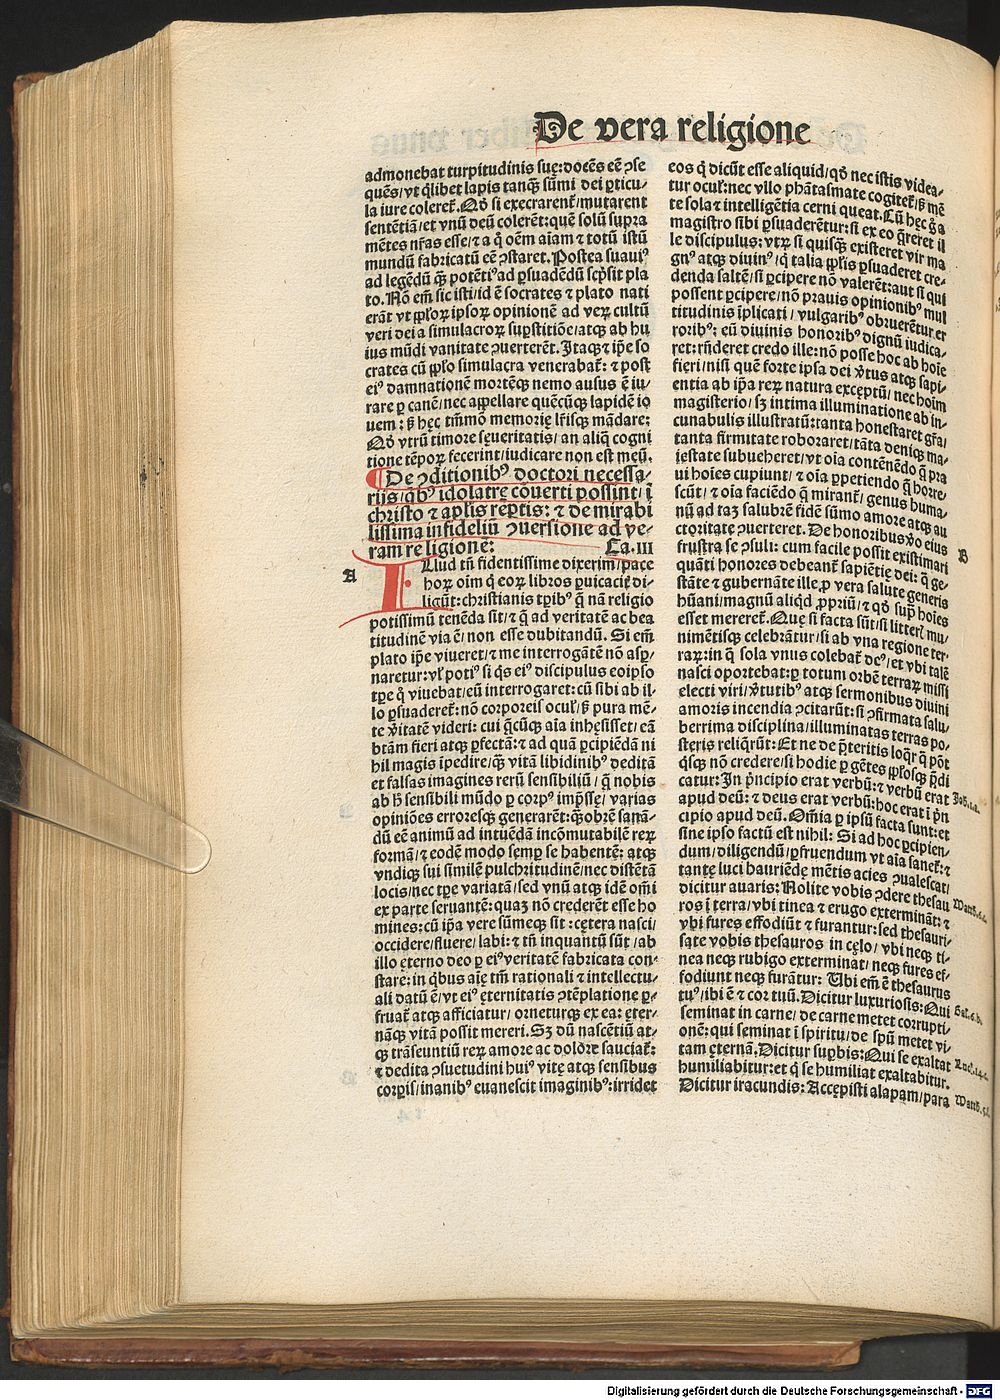 De vera religione
admonebat turpitudinis suę: docēs eē ↄ̨se
quēs/ vt q̄libet lapis tanq̄ sūmi dei ꝑticu-
la iure coleret᷑. Qđ si execrarent᷑/ mutarent
sentētiā/ et vnū deū colerēt: quē solū supra
mētes nr̄as esse/ ⁊ a q̊ oēm aīam ⁊ totū istū
mundū fabricatū eē ↄstaret. Postea suauiꝰ
ad legēdū q̄ꝫ potētiꝰ ad ꝑsuadēdū scp̄sit pla
to. Nō em̄ sic isti/ id ē socrates ⁊ plato nati
erāt vt ppl̓oꝝ ipsoꝝ opinionē ad veꝝ cultū
veri dei a simulacroꝝ suꝑstitiōe/ atqꝫ ab hu
ius mūdi vanitate ↄuerterēt. Itaqꝫ ⁊ ip̄e so
crates cū ppl̓o simulacra venerabat᷑: ⁊ post
eiꝰ damnationē mortēqꝫ nemo ausus ē iu-
rare ꝑ canē/ nec appellare quēcūqꝫ lapidē io
uem: ꝫ hęc tm̄mō memorię lr̄isqꝫ mādare:
Qđ vtrū timore sęueritatis/ an aliq̄ cogni
tione tēpoꝝ fecerint/ iudicare non est meū.
¶ De ↄditionibꝰ doctori necessa-
rijs/ q̄bꝰ idolatrę cōuerti possint/ ī
christo ⁊ apl̓is reptis: ⁊ de mirabi
lissima infideliū ↄuersione ad ve-
ram religionē: Ca. III
A
ILlud tn̄ fidentissime dixerim/ pace
hoꝝ oīm q̄ eoꝝ libros ꝑuicacię di-
ligūt: christianis tp̄ibꝰ q̄ nā religio
potissimū tenēda sit/ ⁊ q̄ ad veritatē ac bea
titudinē via ē/ non esse dubitandū. Si em̄
plato ip̄e viueret/ ⁊ me interrogātē nō asꝑ-
naretur: vl̓ potiꝰ si q̄s eiꝰ discipulus eoip̄so
tp̄e q̊ viuebat/ eū interrogaret: cū sibi ab il-
lo ꝑsuaderet᷑: nō corporeis ocul̓/ ꝫ pura mē-
te v̄itatē videri: cui q̄cūqꝫ aīa inhęsisset/ eā
btām fieri atqꝫ ꝑfectā: ⁊ ad quā ꝑcipiēdā ni
hil magis īpedire/ q̄ꝫ vitā libidinibꝰ deditā
et falsas imagines rerū sensibiliū/ q̄ nobis
ab h̄ sensibili mūdo ꝑ corpꝰ imp̄ssę/ varias
opiniōes erroresqꝫ generarēt: q̄obrē sanā-
dū eē animū ad intuēdā incōmutabilē reꝝ
formā/ ⁊ eodē modo semꝑ se habentē: atqꝫ
vndiqꝫ sui similē pulchritudinē/ nec distētā
locis/ nec tp̄e variatā/ sed vnū atqꝫ idē om̄i
ex parte seruantē: quaꝫ nō crederēt esse ho
mines: cū ip̄a vere sūmeqꝫ sit: cętera nasci/
occidere/ fluere/ labi: ⁊ tn̄ inquantū sūt/ ab
illo ęterno deo ꝑ eiꝰ veritatē fabricata con-
stare: in q̄bus aię tm̄ rationali ⁊ intellectu-
ali datū ē/ vt eiꝰ ęternitatis ↄtēplatione ꝑ-
fruat᷑ atqꝫ afficiatur/ orneturqꝫ ex ea: ęter-
nāqꝫ vitā possit mereri. Sꝫ dū nascētiū at-
qꝫ trāseuntiū reꝝ amore ac dolore sauciat᷑:
⁊ dedita ↄsuetudini huiꝰ vitę atqꝫ sensibus
corꝑis/ inanibꝰ euanescit imaginibꝰ: irridet
eos q̄ dicūt esse aliquid/ qđ nec istis videa-
tur ocul̓: nec vllo phātasmate cogitet᷑/ ꝫ mē
te sola ⁊ intelligētia cerni queat. Cū hęc g̊ a
magistro sibi ꝑsuaderētur: si ex eo q̄reret il
le discipulus: vtꝝ si quisqꝫ existeret vir ma
gnꝰ atqꝫ diuinꝰ/ q̄ talia ppl̓is ꝑsuaderet cre-
denda saltē/ si ꝑcipere nō valerēt: aut si qui
possent ꝑcipere/ nō prauis opinionibꝰ mul
titudinis īplicati/ vulgaribꝰ obruerētur er
roribꝰ: eū diuinis honoribꝰ dignū iudica-
ret: rn̄deret credo ille: nō posse hoc ab hoīe
fieri/ nisi quē forte ipsa dei v̄tus atqꝫ sapi-
entia ab ip̄a reꝝ natura exceptū/ nec hoīm
magisterio/ sꝫ intima illuminatione ab in-
cunabulis illustratū: tanta honestaret gr̄a/
tanta firmitate roboraret/ tāta deniqꝫ ma-
iestate subueheret/ vt oīa contēnēdo q̄ pra
ui hoīes cupiunt/ ⁊ oīa ꝑpetiendo q̄ horre-
scūt/ ⁊ oīa faciēdo q̄ mirant᷑/ genus huma-
nū ad taꝫ salubrē fidē sūmo amore atqꝫ au
ctoritate ↄuerteret. De honoribus v̊o eius
frustra se ↄsuli: cum facile possit existimari
B
quāti honores debeant᷑ sapiētię dei: q̄ ge-
stāte ⁊ gubernāte ille/ ꝓ vera salute generis
hūani/ magnū aliqđ ꝓpriū/ ⁊ qđ sup̄ hoīes
esset mereret᷑. Quę si facta sūt/ si litteꝝ mu-
nimētisqꝫ celebrātur/ si ab vna regione ter-
raꝝ: in q̄ sola vnus colebat᷑ deꝰ/ et vbi talē
nasci oportebat: ꝑ totum orbē terraꝝ missi
electi viri/ v̄tutibꝰ atqꝫ sermonibus diuini
amoris incendia ↄcitarūt: si ↄfirmata salu-
berrima disciplina/ illuminatas terras po-
steris reliq̄rūt: Et ne de p̄teritis loq̄r q̄ pōt
q̄sqꝫ nō credere/ si hodie ꝑ gētes ppl̓osqꝫ p̄di
catur: In p̄ncipio erat verbū: ⁊ verbū erat
Joh̄.1.a.
apud deū: ⁊ deus erat verbū: hoc erat ī p̄n
cipio apud deū. Om̄ia ꝑ ipsū facta sunt: et
sine ipso factū est nihil: Si ad hoc ꝑcipien-
dum/ diligendū/ ꝑfruendum vt aīa sanet᷑: ⁊
tantę luci hauriēdę mētis acies ↄualescat/
dicitur auaris: Nolite vobis ↄdere thesau
Matth̄.6.c.
ros ī terra/ vbi tinea ⁊ erugo extermināt: ⁊
vbi fures effodiūt ⁊ furantur: sed thesauri-
sate vobis thesauros in cęlo/ vbi neqꝫ ti-
nea neqꝫ rubigo exterminat/ neqꝫ fures ef-
fodiunt neqꝫ furātur: Ubi em̄ ē thesaurus
tuꝰ/ ibi ē ⁊ cor tuū. Dicitur luxuriosis: Qui
Gal.6.b.
seminat in carne/ de carne metet corrupti-
onē: qui seminat ī spiritu/ de spū metet vi-
tam ęternā. Dicitur suꝑbis: Qui se exaltat
Luc̄.14.c.
humiliabitur: et q̄ se humiliat exaltabitur.
Dicitur iracundis: Accępisti alapam/ para
Matth̄.5.f.
Digitalisierung gefördert durch die Deutsche Forschungsgemeinschaft - DFG